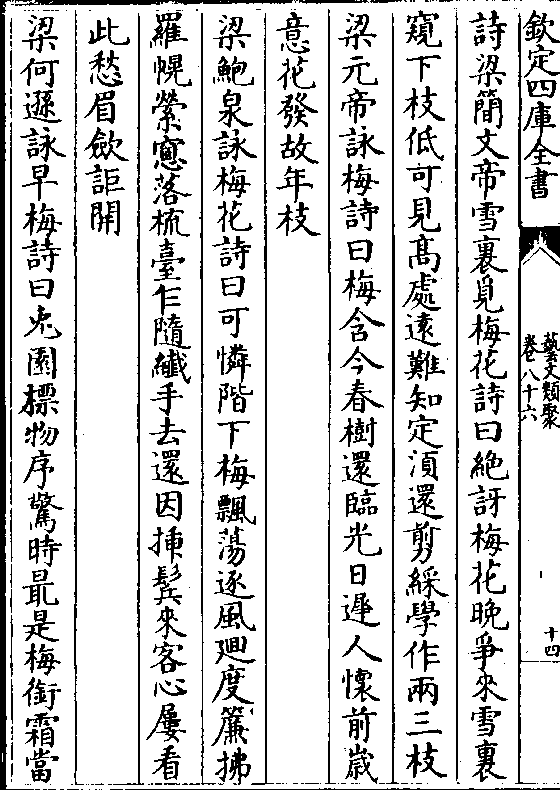 欽定四庫全書
藝文類聚
卷八十六
十四
詩梁簡文帝雪裏覓梅花詩曰絶訝梅花晚爭來雪裏
窺下枝低可見髙處逺難知定湏還剪綵學作兩三枝
梁元帝詠梅詩曰梅含今春樹還臨光日遲人懷前歳
意花發故年枝
梁鮑泉詠梅花詩曰可憐階下梅飄蕩逐風廻度簾拂
羅幌縈窻落梳臺乍隨纎手去還因揷鬂來客心屢看
此愁眉斂詎開
梁何遜詠早梅詩曰兎園標物序驚時最是梅銜霜當